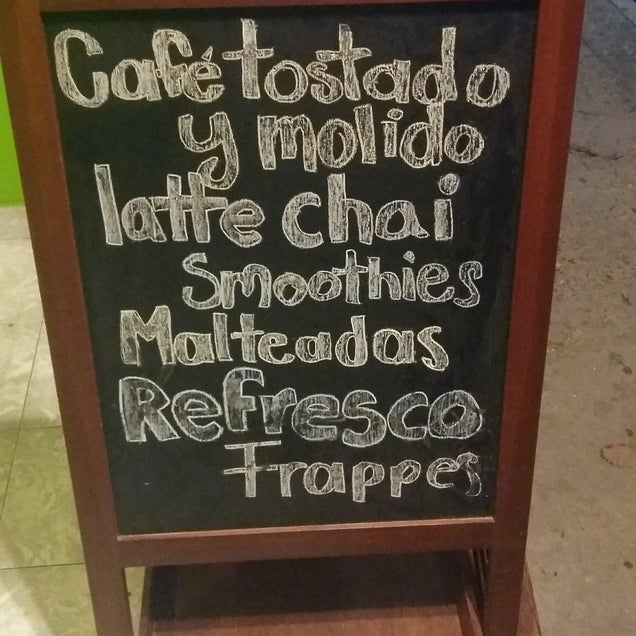 Café tostado
y molido
latte chai
Smoothies
Malteadas
Refresco
Frappes